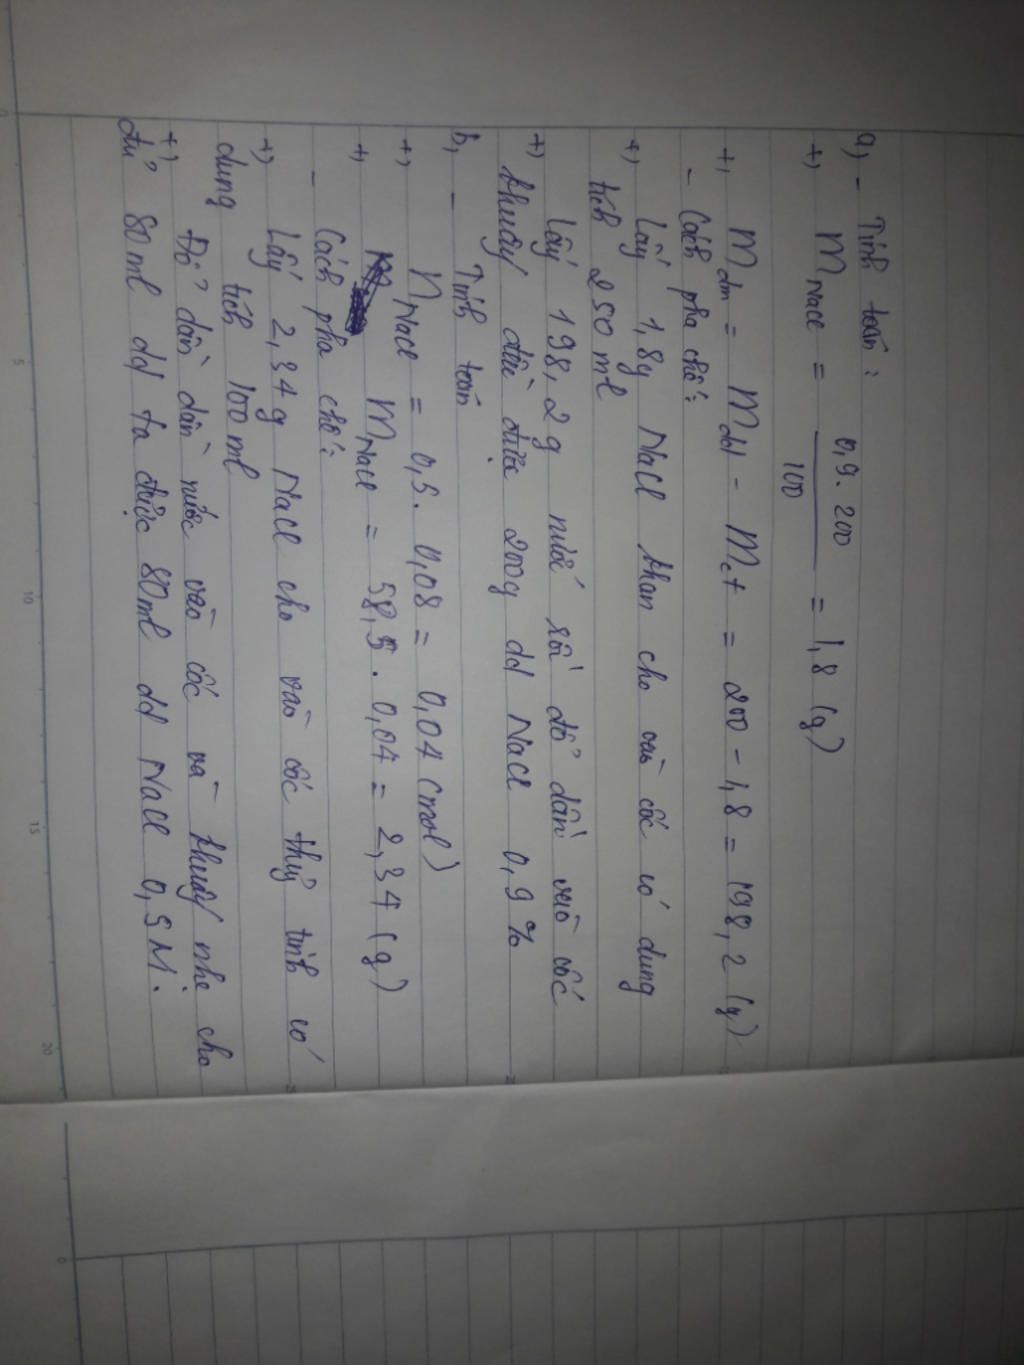 a, - Tính toán:
+) m NaCl = 0,9. 200 / 100 = 1,8 (g)
+, m dm = m dd - m ct = 200 - 1,8 = 198,2 (g)
- Cách pha chế:
+) Lấy 1,8g NaCl khan cho vào cốc có dung
tích 250 ml
+) Lấy 198,2g nước rồi đổ dần vào cốc
khuấy đều được 200g dd NaCl 0,9%
b, - Tính toán
+) n NaCl = 0,5. 0,08 = 0,04 (mol)
+, m NaCl = 58,5. 0,04 = 2,34 (g)
- Cách pha chế:
+) Lấy 2,34g NaCl cho vào cốc thuỷ tinh có
dung tích 100 ml
+) Đổ dần dần nước vào cốc và khuấy nhẹ cho
đủ 80 ml dd ta được 80 ml dd NaCl 0,5M.
0
5
10
15
20
0